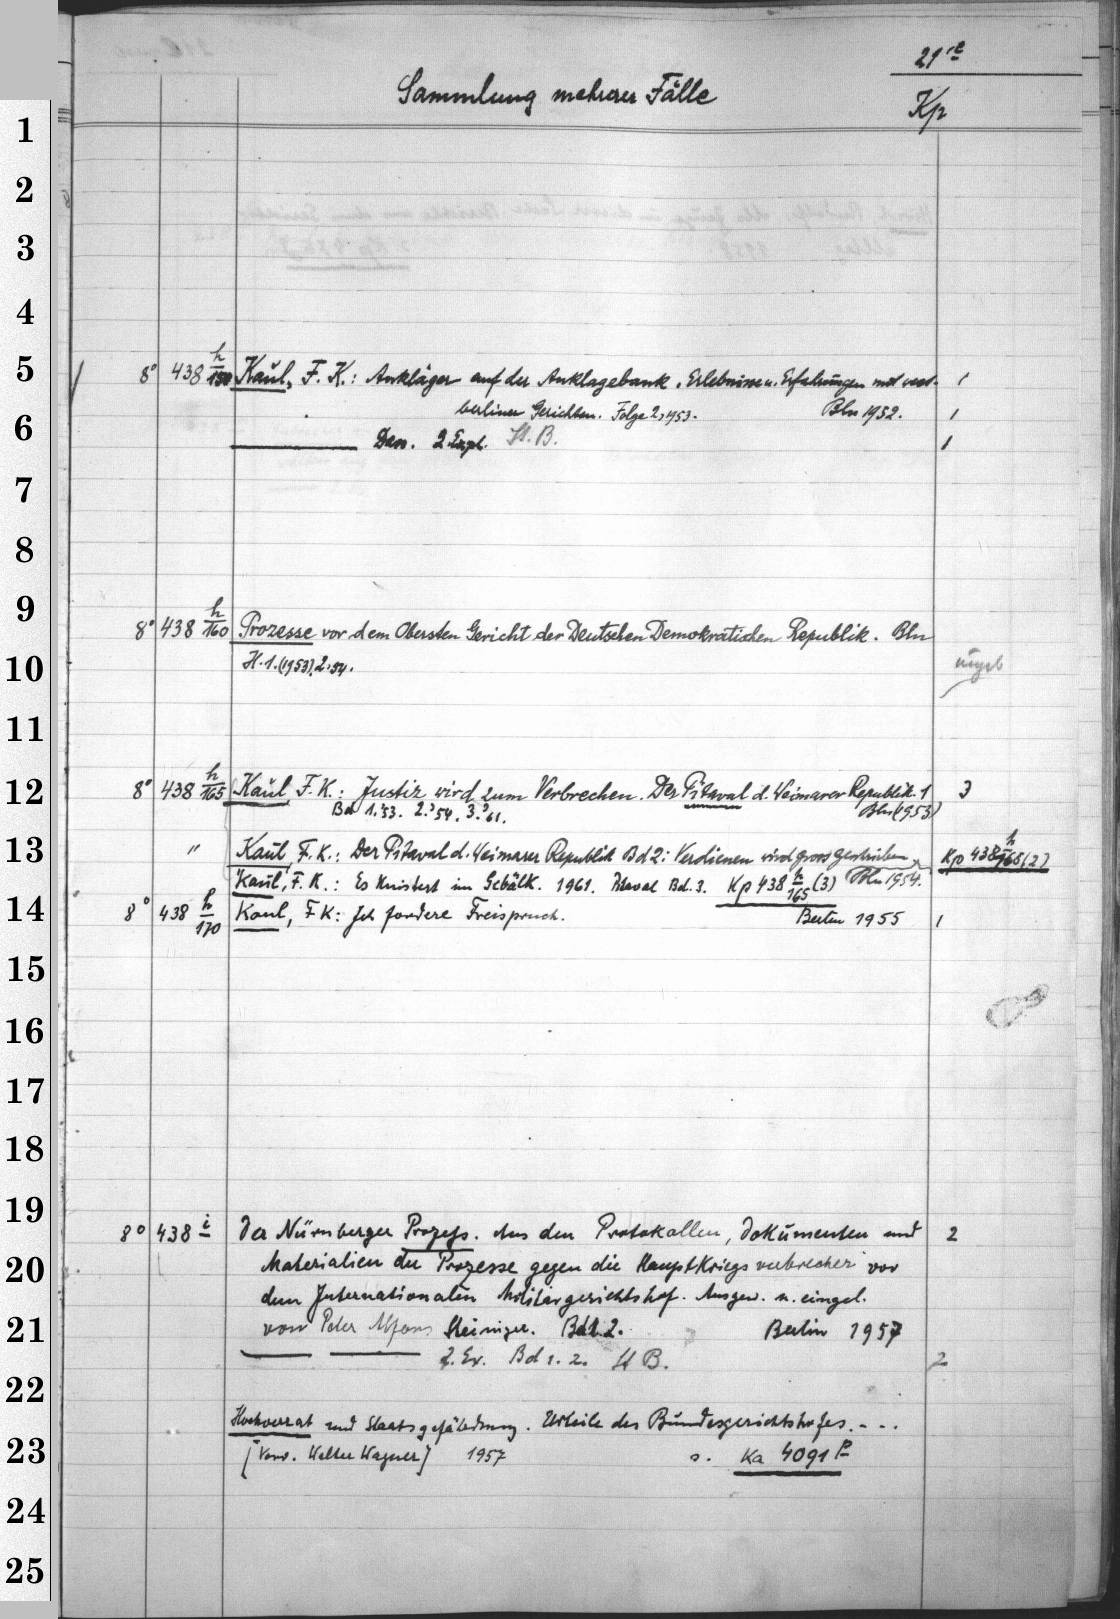 21 re
Sammlung mehrerer Fälle
Kp
1
2
3
4
5 8° 438 h/150 Kaul, F. K.: Ankläger auf der Anklagebank. Erlebnisse u. Erfahrungen mit west- 1
berliner Gerichten. Folge 2, 1953. Bln 1952. 1
6 Dass. 2. Expl. St. B. 1
7
8
9 8° 438 h/160 Prozesse vor dem Obersten Gericht der Deutschen Demokratischen Republik. Bln
10 H. 1. (1953), 2.54. ungeb
11
12 8° 438 h/165 Kaul F. K.: Justiz wird zum Verbrechen. Der Pitaval d. Weimarer Republik. 1 3
Bd 1.'53. 2.'54. 3.'61. Bln (1953)
13 " Kaul, F. K.: Der Pitaval d. Weimarer Republik Bd 2: Verdienen wird gross geschrieben Kp 438 h/165 (2)
Kaul, F. K.: Es knistert im Gebälk. 1961. Pitaval Bd. 3. Kp 438 h/165 (3) Bln 1954.
14 8° 438 h/170 Kaul, F K: Ich fordere Freispruch. Berlin 1955 1
15
16
17
18
19 8° 438 i Der Nürnberger Prozess. Aus den Protokollen, Dokumenten und 2
20 Materialien der Prozesse gegen die Hauptkriegsverbrecher vor
dem Internationalen Militärgerichtshof. Ausgew. u. eingel.
21 von Peter Alfons Steiniger. Bd 1. 2. Berlin 1957
2. Ex. Bd 1. 2. St B. 2
22
Hochverrat und Staatsgefährdung. Urteile des Bundesgerichtshofes. - - .
23 [Vorw. Walter Wagner] 1957 s. Ka 4091 p
24
25